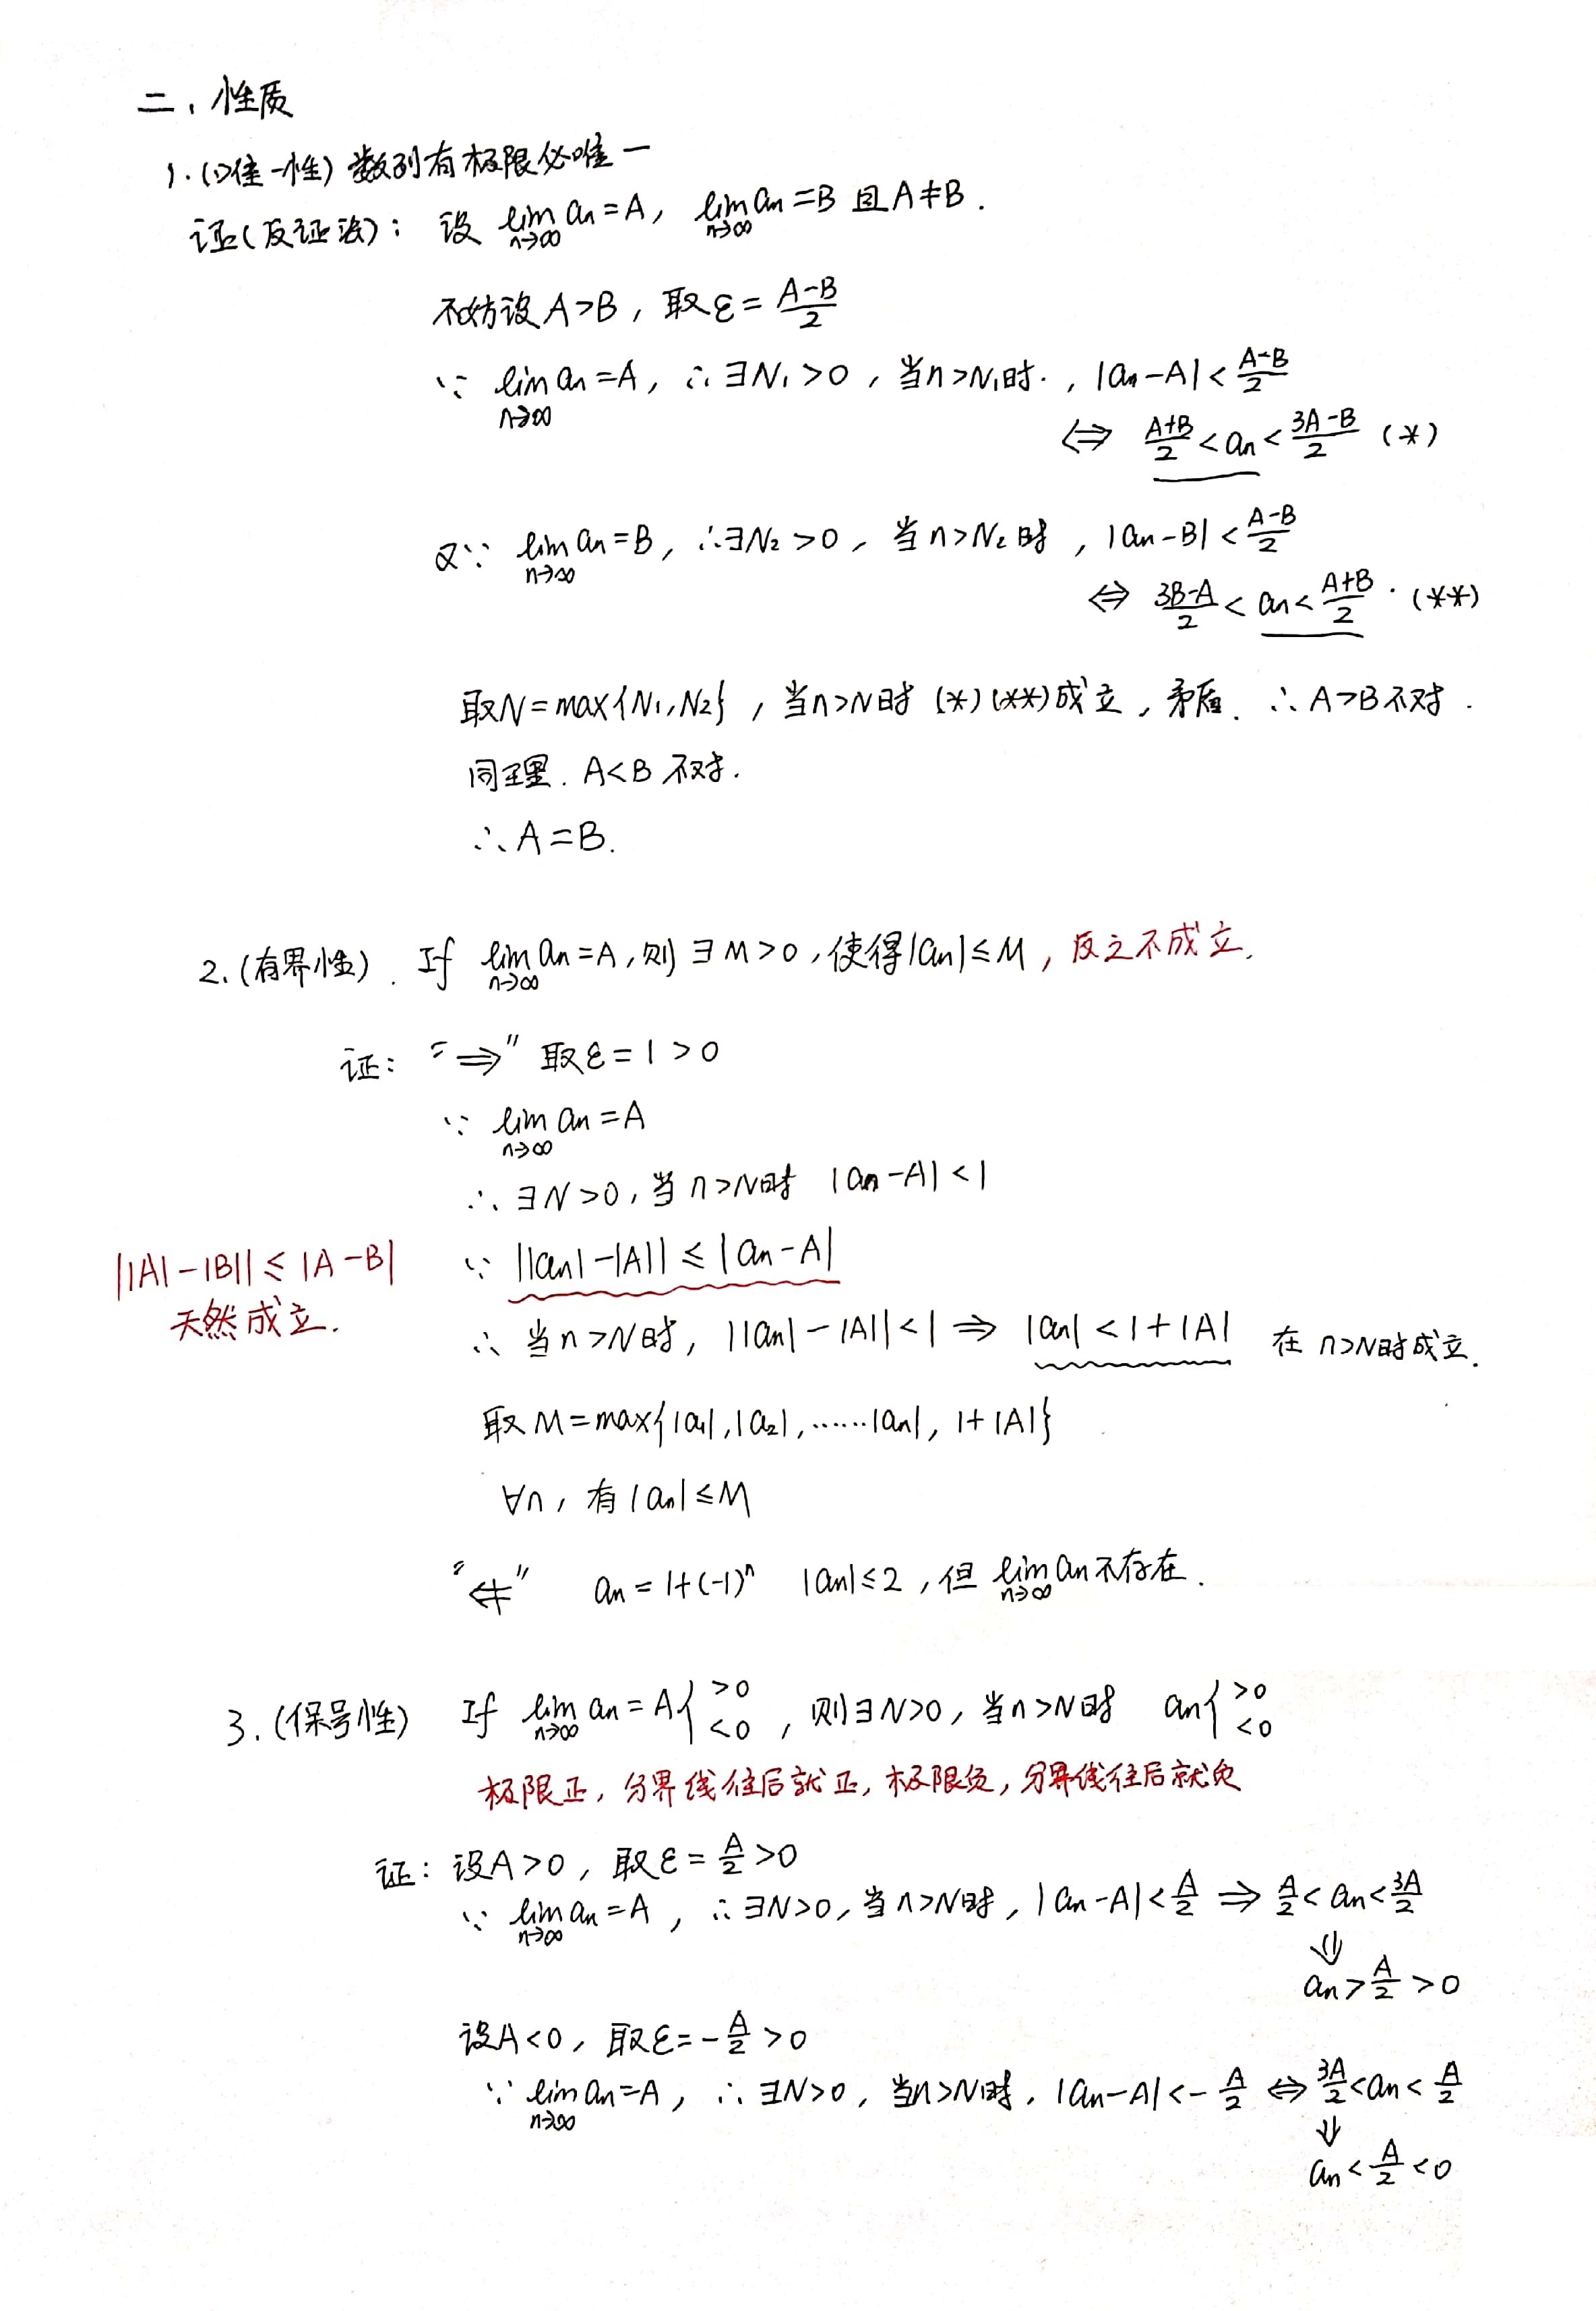 二、性质
1.(唯一性) 数列有极限必唯一
证(反证法)： 设 lim_{n→∞} an = A, lim_{n→∞} an = B 且 A≠B.
不妨设 A>B, 取 ε = (A-B)/2
∵ lim_{n→∞} an = A, ∴ ∃N₁>0, 当n>N₁时., |an-A| < (A-B)/2
⇔ (A+B)/2 < an < (3A-B)/2 (*)
又∵ lim_{n→∞} an = B, ∴∃N₂>0, 当n>N₂时, |an-B| < (A-B)/2
⇔ (3B-A)/2 < an < (A+B)/2 . (**)
取N=max{N₁,N₂}, 当n>N时 (*)(**)成立, 矛盾. ∴ A>B不对.
同理. A<B 不对.
∴ A=B.
2.(有界性). If lim_{n→∞} an = A, 则 ∃ M>0, 使得|an|≤M, 反之不成立.
证： "⇒" 取ε=1>0
∵ lim_{n→∞} an = A
∴ ∃N>0, 当 n>N时 |an-A|<1
||A|-|B|| ≤ |A-B| ∵ ||an|-|A|| ≤ |an-A|
天然成立. ∴ 当n>N时, ||an|-|A||<1 ⇒ |an|<1+|A| 在 n>N时成立.
取 M=max{|a₁|,|a₂|,……|an|, 1+|A|}
∀n, 有|an|≤M
"⇍" an=1+(-1)ⁿ |an|≤2, 但 lim_{n→∞} an 不存在.
3.(保号性) If lim_{n→∞} an = A{>0 <0, 则∃N>0, 当n>N时 an{>0 <0
极限正, 分界线往后就正, 极限负, 分界线往后就负
证： 设A>0, 取ε = A/2 >0
∵ lim_{n→∞} an = A, ∴ ∃N>0, 当n>N时, |an-A| < A/2 ⇒ A/2 < an < 3A/2
⇓
an > A/2 > 0
设A<0, 取ε = -A/2 >0
∵ lim_{n→∞} an = A, ∴ ∃N>0, 当n>N时, |an-A| < -A/2 ⇔ 3A/2 < an < A/2
⇓
an < A/2 < 0